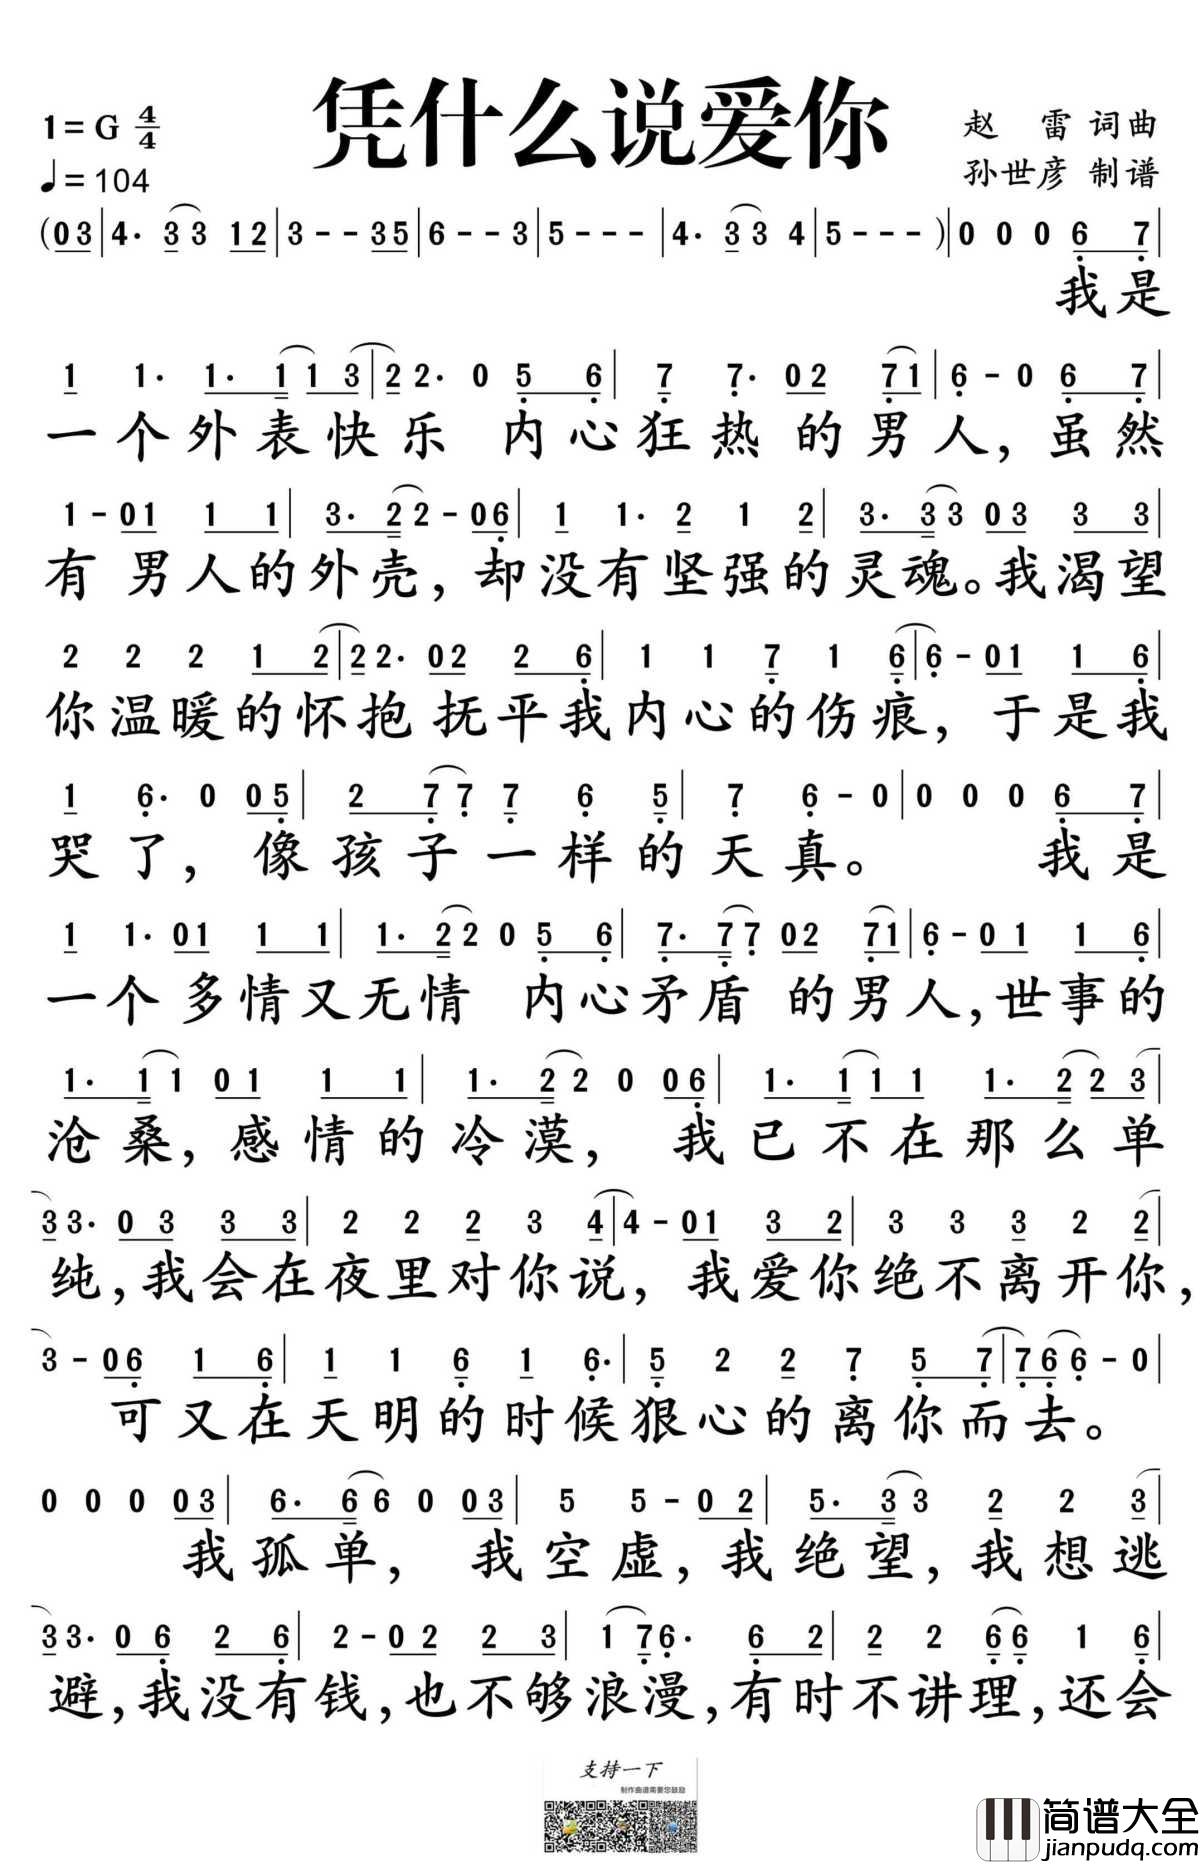 凭什么说爱你
1=G 4/4
♩=104
赵 雷 词曲
孙世彦 制谱
(03|4· 33 12|3--35|6--3|5---|4· 33 4|5---)|000 6 7|
我是
1 1· 1· 1 1 3|2 2· 0 5 6|7 7· 02 71|6-0 6 7|
一个外表快乐 内心狂热的男人,虽然
1-01 1 1|3· 2 2-06|1 1· 2 1 2|3· 3 3 03 3 3|
有男人的外壳,却没有坚强的灵魂。我渴望
2 2 2 1 2|2 2· 02 2 6|1 1 7 1 6|6-01 1 6|
你温暖的怀抱抚平我内心的伤痕,于是我
1 6· 0 05|2 7 7 7 6 5|7 6-0|000 6 7|
哭了,像孩子一样的天真。 我是
1 1· 01 1 1|1· 2 2 0 5 6|7· 7 7 02 71|6-01 1 6|
一个多情又无情 内心矛盾的男人,世事的
1· 1 1 01 1 1|1· 2 2 0 06|1· 1 1 1 1· 2 2 3|
沧桑,感情的冷漠,我已不在那么单
3 3· 0 3 3 3|2 2 2 3 4|4-01 3 2|3 3 3 2 2|
纯,我会在夜里对你说,我爱你绝不离开你,
3-06 1 6|1 1 6 1 6·|5 2 2 7 5 7|7 6 6-0|
可又在天明的时候狠心的离你而去。
0 0 0 03|6· 6 6 0 03|5 5-02|5· 3 3 2 2 3|
我孤单,我空虚,我绝望,我想逃
3 3· 0 6 2 6|2-02 2 3|1 7 6· 6 2|2 2 6 6 1 6|
避,我没有钱,也不够浪漫,有时不讲理,还会
支持一下
制作曲谱需要您鼓励
简谱大全
jianpudq.com